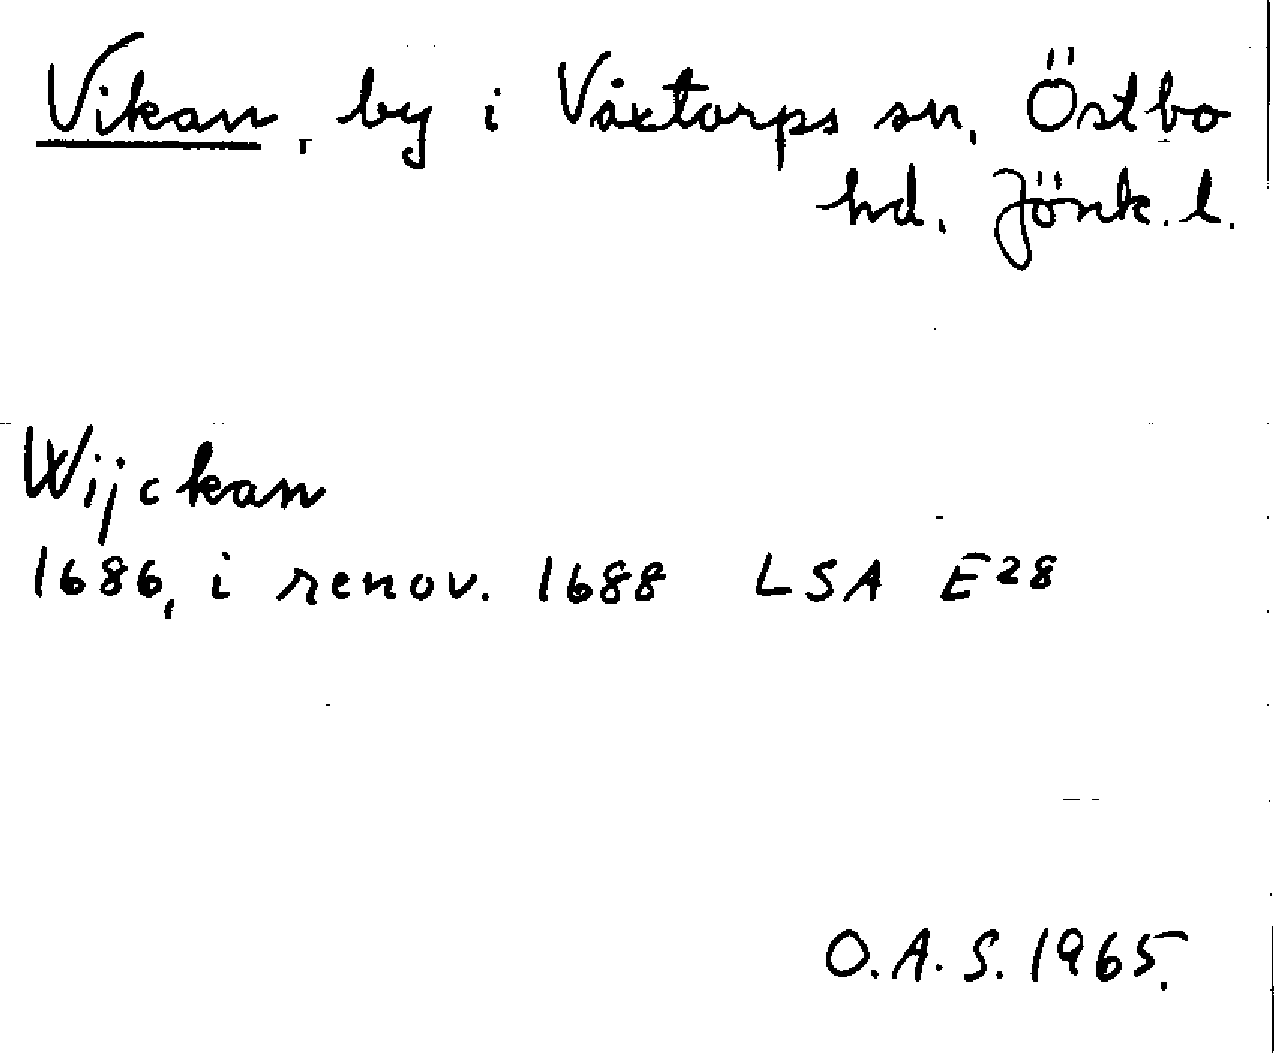 Vikan, by i Våxtorps sn, Östbo
hd. Jönk. l.
Wijckan
1686, i renov. 1688 LSA E28
O.A.S. 1965.